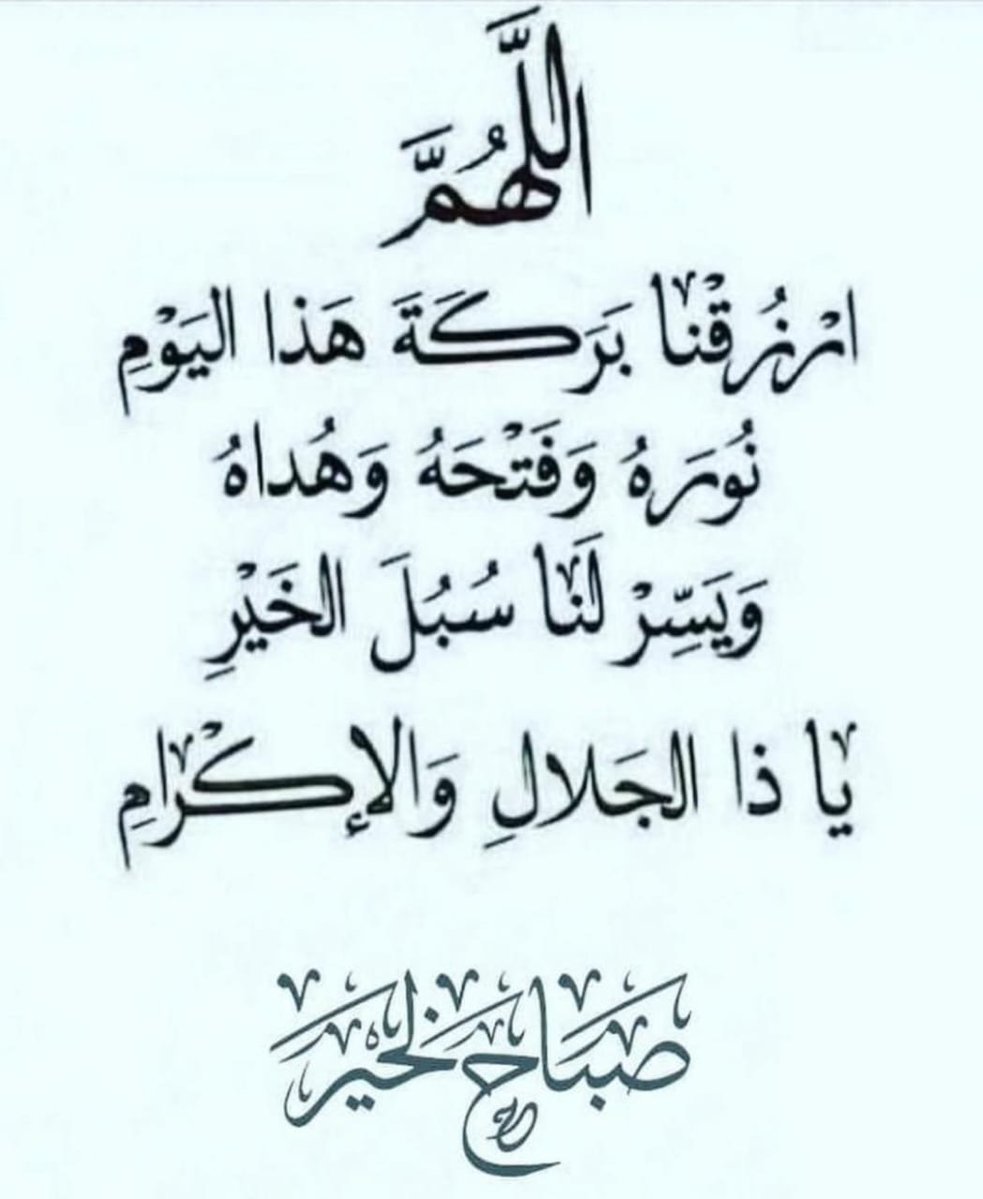 اللَّهُمَّ
ارْزُقْنا بَرَكَةَ هَذا اليَوْمِ
نُورَهُ وَفَتْحَهُ وَهُداهُ
وَيَسِّرْ لَنا سُبُلَ الخَيْرِ
يا ذا الجَلالِ وَالإكْرامِ
صباح الخير